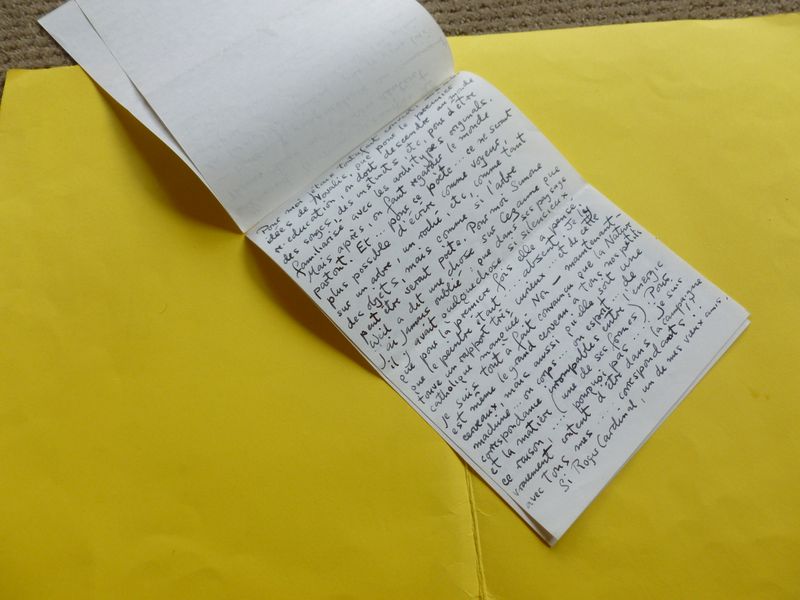 Pour moi, j'étais tout à fait convaincu
idées de Novalis, que pour le
re-education, on doit descendre au monde
des songes, des instincts, etc, pour d'être
familiarisé avec les architypes originals.
Mais après, on faut regarder le monde
partout. Et... pour ce poète... ce ne serait
plus possible d'écrire comme voyeur,
des objets, mais comme
sur un arbre, un roche, etc, comme tant
peut-être serait poète, si l'arbre
Weil a dit une chose sur Cezanne que
j'ai jamais oublié: que dans ses paysages
il y avait quelque chose si silencieux
que pour la première fois elle a pensé
que le peintre était absent. Je
touve un rapport très curieux... et de cette
catholique manquée. Non - maintenant -
je suis tout à fait convaincu que la Nature
est même le grand cerveau à tous nos petits
cerveaux, mais aussi qu'elle soit une
machine... on corps... on esprit... de
correspondance incroyables entre l'énergie
et la matière (une de ses formes). Pour
ce raison, ... pourquoi pas... je suis
vraiment content d'être dans la campagne
avec tous mes ... correspondants!?
Si Roger Cardinal un de mes vieux amis,